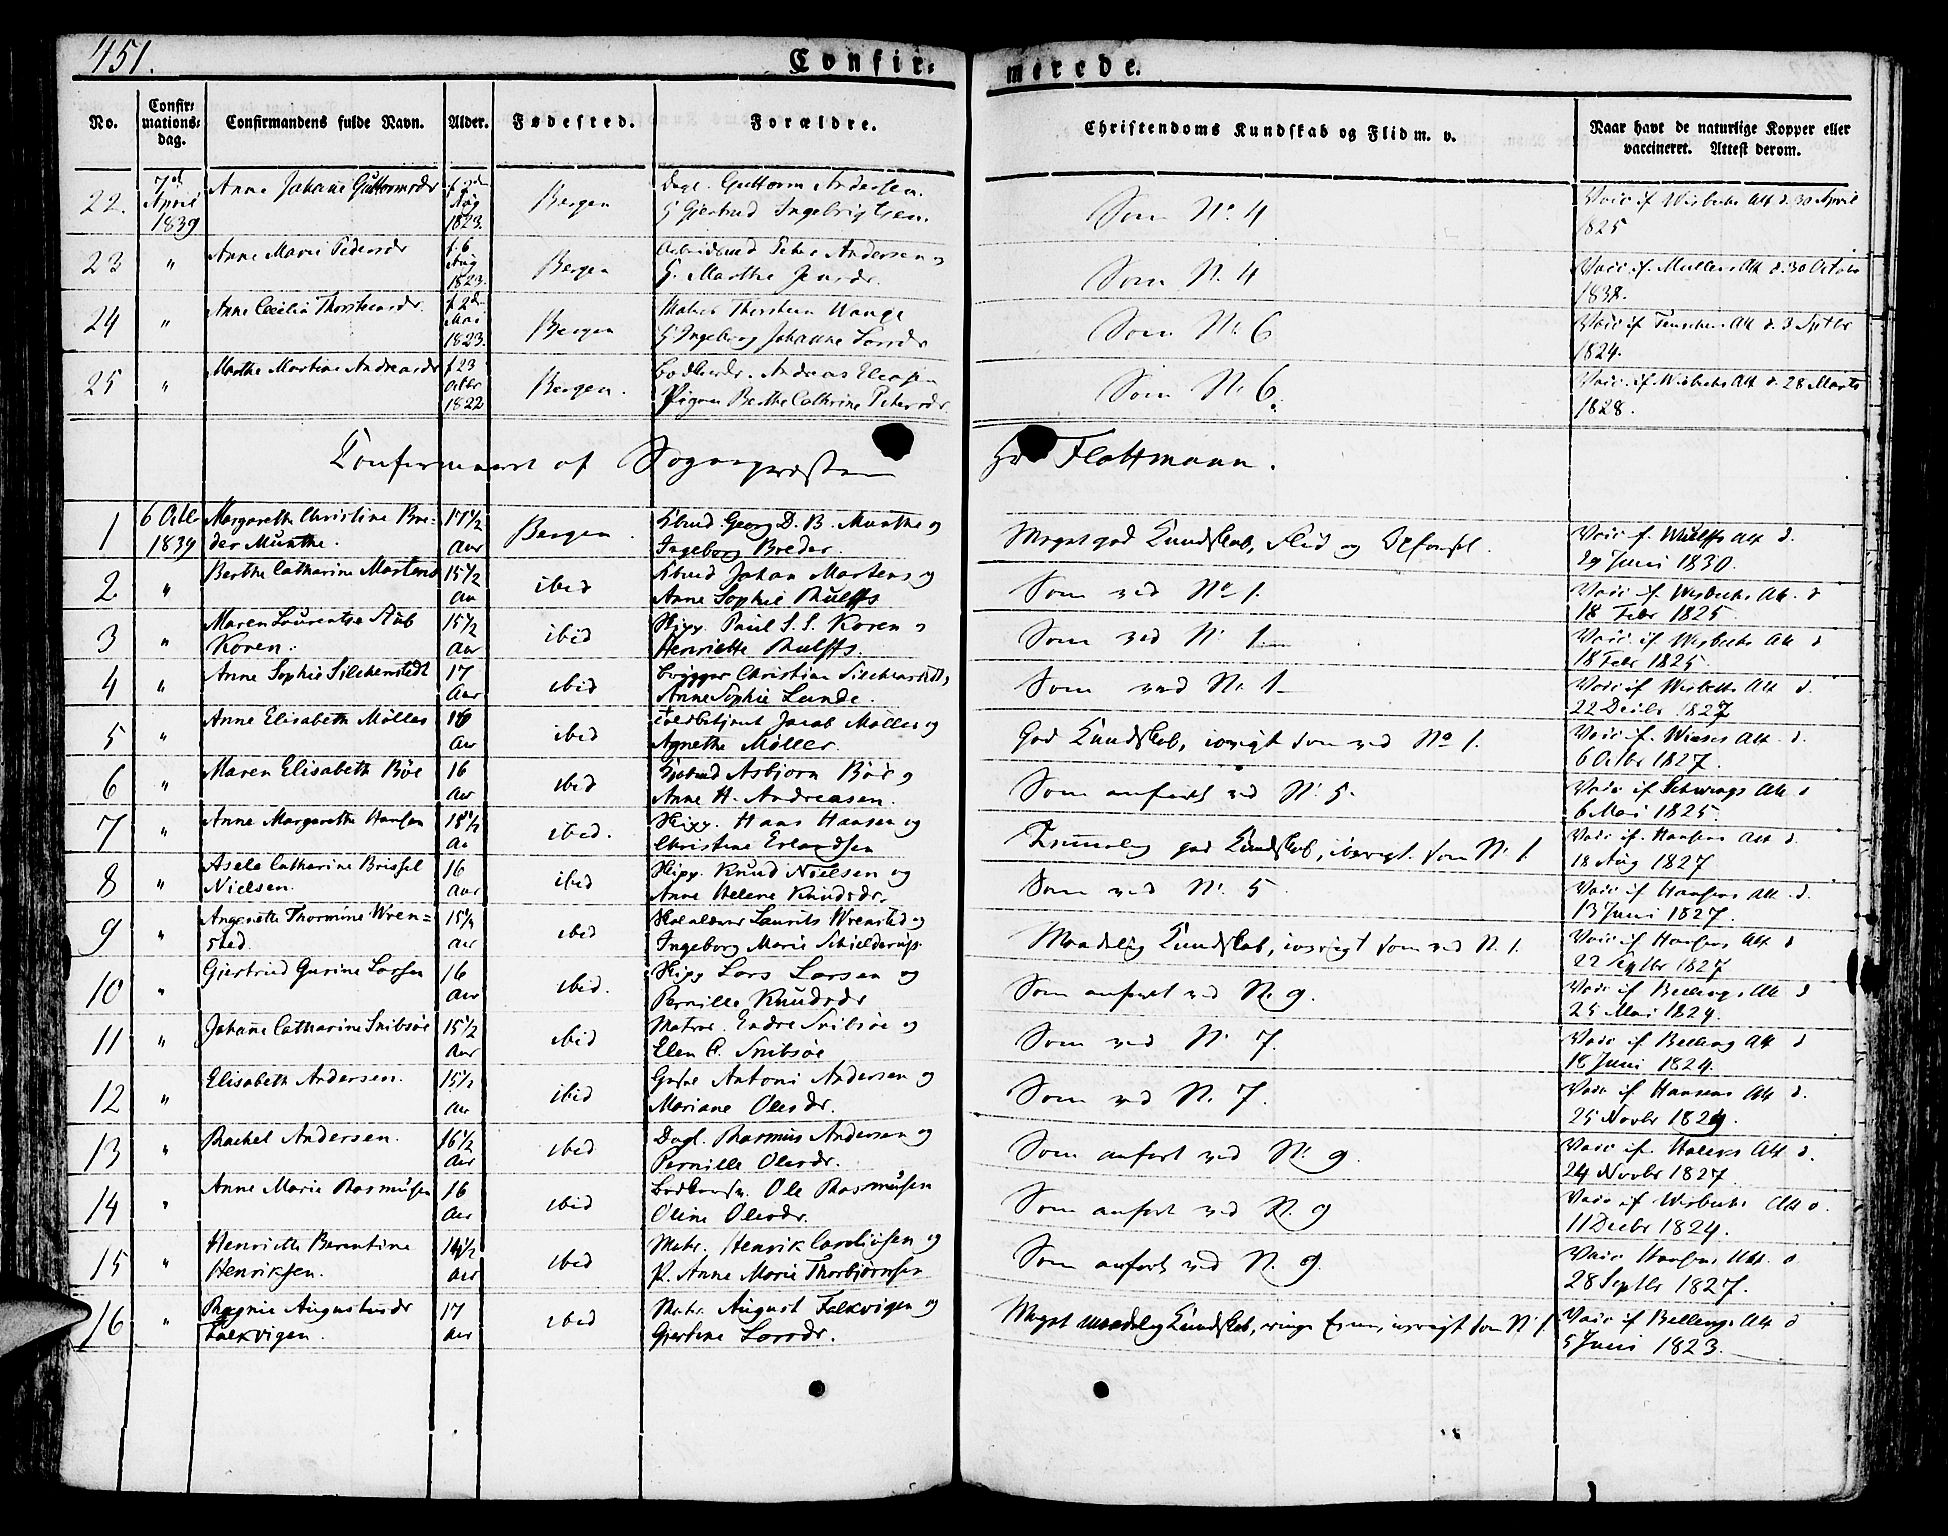 451.
Confir⸗
merede.
No.
Confir⸗
mations⸗
dag.
Confirmandens fulde Navn.
Alder.
Fødested.
Forældre.
Christendoms Kundskab og Flid m. v.
Naar havt de naturlige Kopper eller
vaccineret. Attest derom.
22. 7de April 1839 Anne Johanne Guttormsdr f 2d Aug 1823. Bergen Dagl. Guttorm Andersen. G Gjertrud Ingebrigtsen. Som No. 4 Vacc if Wisbechs Att d. 30 April 1825
23 " Anne Marie Pedersdr f. 6 Aug 1823. Bergen Arbeidsmd Peder Andersen G. Marthe Jensdr. Som N. 4 Vacc if. Mullers Att d. 30 Octobr
24 " Anne Cecilia Thorstensdr. f 2d Mai 1823. Bergen Thorsten G Ingeborg Johanne Larsdr Som N. 6 Vacc if Att d. 3 Septbr 1824.
25 " Marthe Martine Andreasdr f 23 Octbr 1822 Bergen. Andreas Pigen Berthe Cathrine Petersdr Som N. 6. Vacc. if. Wisbechs Att d. 28 Marts 1828.
Confirmeret af Sognepræsten
Hr Flottmann.
1 6 Octbr 1839 Margarethe Christine Bre⸗
der Munthe. 17½ Aar Bergen. Kbmd Georg D. B. Munthe og
Ingeborg Breder. Meget god Kundskab, Flid og Opførsel. Vacc if. Wulffs Att d.
29 Juni 1830.
2 " Berthe Catharine Martens 15½ Aar ibid Kbmd Johan Martens og
Anne Sophie Thulffs Som ved No 1. Vacc if. Wisbechs Att. d
18 Febr 1825.
3 " Maren Laurentse Aub
Koren. 15½ Aar ibid Skipp. Paul S. S. Koren
Henriette Thulffs. Som ved N. 1 Vacc if Wisbechs Att d
18 Febr 1825.
4 " Anne Sophie Silchenstedt 17 Aar ibid Brygger Christian Silchenstedt
Anne Sophie Lunde. Som ved N. 1 Vacc if Wisbechs Att d.
22 Decbr 1827
5 " Anne Elisabeth Møller 16 Aar ibid Toldbetjent Jacob Møller og
Agnethe Møller. God Kundskab, iøvrigt som ved No 1. Vacc if. Wieses Att. d.
6 Octbr 1827.
6 " Maren Elisabeth Bøe 16 Aar ibid Asbjørn Bøe og
Anne H. Andreasen. Som anført ved N. 5. Vacc if Att d
6 Mai 1825.
7 " Anne Margarethe Hansen 18½ Aa ibid. Skipp. Hans Hansen og
Christine Erlandsen Temmelig god Kundskab, iøvrigt som N. 1. Vacc if. Hansens Att d.
18 Aug 1827
8 " Asele Catharine Briessel
Nielsen. 16 Aar ibid Skipp. Knud Nielsen og
Anne Helene Knudsdr. Som ved N. 5 Vacc if Hansens Att. d.
13 Juni 1827.
9 " Angenette Thormine Wren=
sted. 15½ aar ibid Skolelærer Laurits Wrensted og
Ingeborg Marie Schielderup. Maadelig Kundskab, iøvrigt som ved N. 1. Vacc if Hansens Att d
22 Septbr 1827
10 " Gjertrud Gurine Larsen 16 Aar ibid. Skipp Lars Larsen og
Pernille Knudsdr Som anført ved N. 9. Vacc if Bellings Att d
25 Mai 1824.
11 " Johanne Catharine Snibsøe 15½ Aar ibid Matros. Endre Snibsøe og
Elen A. Snibsøe Som ved N. 7. Vacc if Belling Att d
18 Juni 1824.
12 " Elisabeth Andersen. 15½ Aar ibid Antoni Andersen og
Mariane Olesdr. Som ved N. 7. Vacc if Hansens Att d.
25 Novbr 1829.
13 " Rachel Andersen. 16½ Aar ibid Dagl. Rasmus Andersen og
Pernille Olesdr. Som anført ved N. 9. Vacc if. Att d.
24 Novbr 1827.
14 " Anne Marie Rasmusen 16 Aar ibid Ole Rasmusen
Oline Olesdr. Som anført ved N. 9 Vacc if Wisbechs Att d.
11 Decbr 1824.
15 " Henriette Berentine
Henriksen. 14½ aar ibid Matr. Henrik og
P. Anne Marie Thorbjørnsen Som anført ved N. 9. Vacc Hansens Att. d
28 Septbr 1827.
16 " Ragnie Augustusdr
Falkvigen. 17 aar ibid Matr. August Falkvigen og
Gjertine Larsdr. Meget maadelig Kundskab, ringe Evner, iøvrigt som N. 1. Vacc if Bellings Att d
5 Juni 1823.